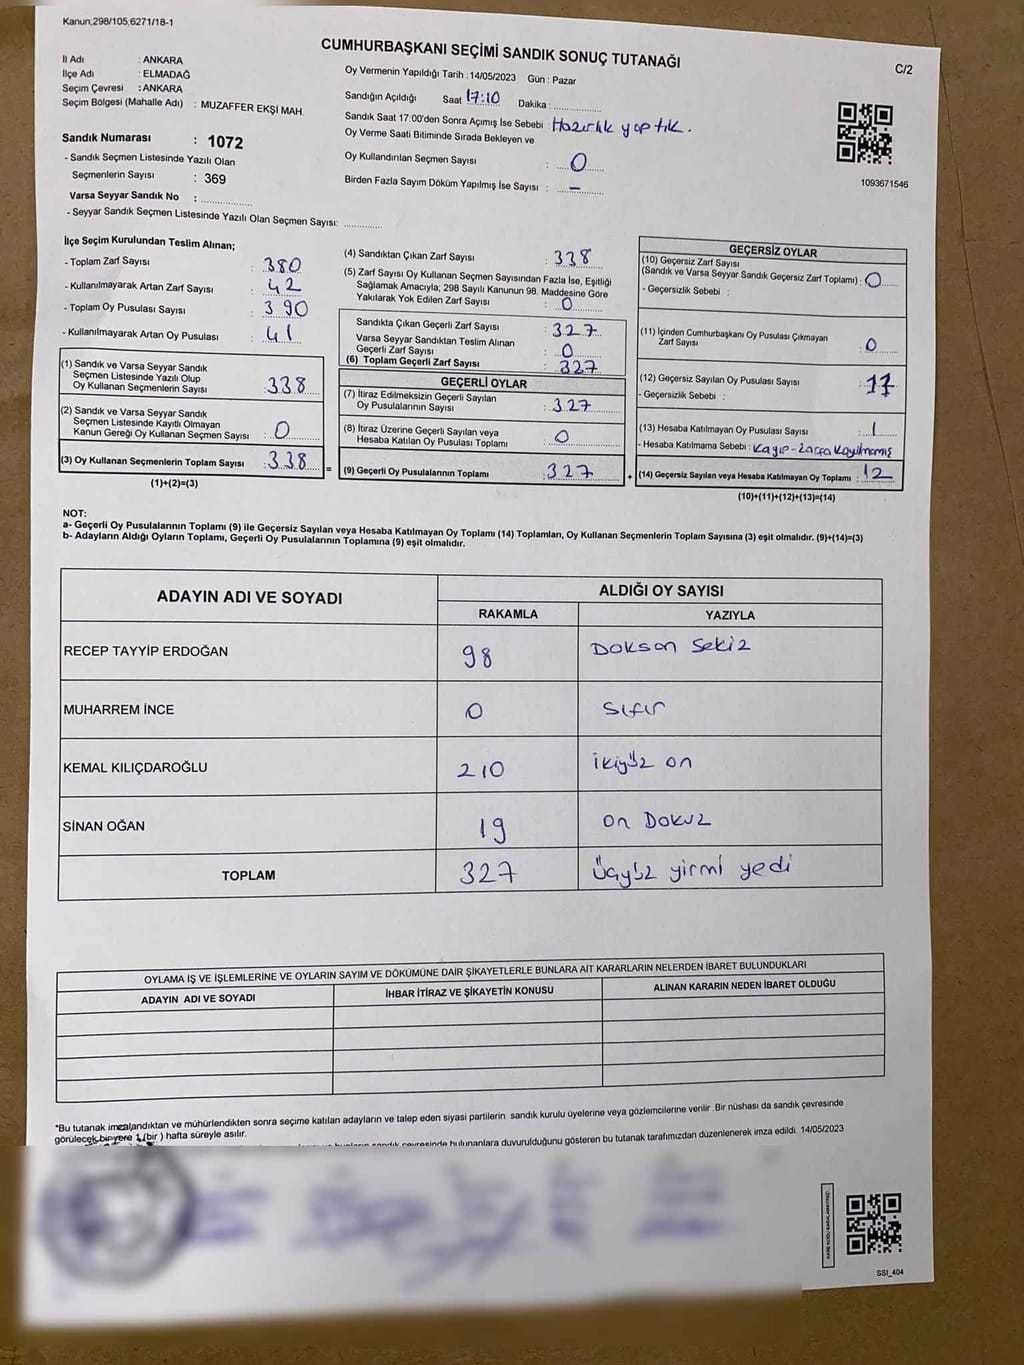 Kanun;298/105;6271/18-1
CUMHURBAŞKANI SEÇİMİ SANDIK SONUÇ TUTANAĞI
C/2
İl Adı : ANKARA
İlçe Adı : ELMADAĞ
Seçim Çevresi : ANKARA
Seçim Bölgesi (Mahalle Adı) : MUZAFFER EKŞİ MAH.
Sandık Numarası : 1072
- Sandık Seçmen Listesinde Yazılı Olan
Seçmenlerin Sayısı : 369
Varsa Seyyar Sandık No :
- Seyyar Sandık Seçmen Listesinde Yazılı Olan Seçmen Sayısı:
Oy Vermenin Yapıldığı Tarih : 14/05/2023 Gün : Pazar
Sandığın Açıldığı Saat 17:10 Dakika :
Sandık Saat 17:00'den Sonra Açımış İse Sebebi : Hazırlık yaptık.
Oy Verme Saati Bitiminde Sırada Bekleyen ve
Oy Kullandırılan Seçmen Sayısı : 0
Birden Fazla Sayım Döküm Yapılmış İse Sayısı : –
1093671546
İlçe Seçim Kurulundan Teslim Alınan;
- Toplam Zarf Sayısı : 380
- Kullanılmayarak Artan Zarf Sayısı : 42
- Toplam Oy Pusulası Sayısı : 390
- Kullanılmayarak Artan Oy Pusulası : 41
(1) Sandık ve Varsa Seyyar Sandık
Seçmen Listesinde Yazılı Olup
Oy Kullanan Seçmenlerin Sayısı : 338
(2) Sandık ve Varsa Seyyar Sandık
Seçmen Listesinde Kayıtlı Olmayan
Kanun Gereği Oy Kullanan Seçmen Sayısı : 0
(3) Oy Kullanan Seçmenlerin Toplam Sayısı : 338
(1)+(2)=(3)
=
(4) Sandıktan Çıkan Zarf Sayısı : 338
(5) Zarf Sayısı Oy Kullanan Seçmen Sayısından Fazla İse, Eşitliği
Sağlamak Amacıyla; 298 Sayılı Kanunun 98. Maddesine Göre
Yakılarak Yok Edilen Zarf Sayısı : 0
Sandıkta Çıkan Geçerli Zarf Sayısı : 327
Varsa Seyyar Sandıktan Teslim Alınan
Geçerli Zarf Sayısı : 0
(6) Toplam Geçerli Zarf Sayısı : 327
GEÇERLİ OYLAR
(7) İtiraz Edilmeksizin Geçerli Sayılan
Oy Pusulalarının Sayısı : 327
(8) İtiraz Üzerine Geçerli Sayılan veya
Hesaba Katılan Oy Pusulası Toplamı : 0
(9) Geçerli Oy Pusulalarının Toplamı : 327
+
GEÇERSİZ OYLAR
(10) Geçersiz Zarf Sayısı
(Sandık ve Varsa Seyyar Sandık Geçersiz Zarf Toplamı) : 0
- Geçersizlik Sebebi :
(11) İçinden Cumhurbaşkanı Oy Pusulası Çıkmayan
Zarf Sayısı : 0
(12) Geçersiz Sayılan Oy Pusulası Sayısı : 11
- Geçersizlik Sebebi :
(13) Hesaba Katılmayan Oy Pusulası Sayısı : 1
- Hesaba Katılmama Sebebi : Kayıp - Zarfa Koyulmamış
(14) Geçersiz Sayılan veya Hesaba Katılmayan Oy Toplamı : 12
(10)+(11)+(12)+(13)=(14)
NOT:
a- Geçerli Oy Pusulalarının Toplamı (9) ile Geçersiz Sayılan veya Hesaba Katılmayan Oy Toplamı (14) Toplamları, Oy Kullanan Seçmenlerin Toplam Sayısına (3) eşit olmalıdır. (9)+(14)=(3)
b- Adayların Aldığı Oyların Toplamı, Geçerli Oy Pusulalarının Toplamına (9) eşit olmalıdır.
ADAYIN ADI VE SOYADI ALDIĞI OY SAYISI
RAKAMLA YAZIYLA
RECEP TAYYİP ERDOĞAN 98 Doksan Sekiz
MUHARREM İNCE 0 Sıfır
KEMAL KILIÇDAROĞLU 210 İkiyüz on
SİNAN OĞAN 19 on Dokuz
TOPLAM 327 Üçyüz yirmi yedi
OYLAMA İŞ VE İŞLEMLERİNE VE OYLARIN SAYIM VE DÖKÜMÜNE DAİR ŞİKAYETLERLE BUNLARA AİT KARARLARIN NELERDEN İBARET BULUNDUKLARI
ADAYIN ADI VE SOYADI İHBAR İTİRAZ VE ŞİKAYETİN KONUSU ALINAN KARARIN NEDEN İBARET OLDUĞU
*Bu tutanak imzalandıktan ve mühürlendikten sonra seçime katılan adayların ve talep eden siyasi partilerin sandık kurulu üyelerine veya gözlemcilerine verilir. Bir nüshası da sandık çevresinde
görülecek bir yere 1 (bir) hafta süreyle asılır.
sandık çevresinde bulunanlara duyurulduğunu gösteren bu tutanak tarafımızdan düzenlenerek imza edildi. 14/05/2023
SSI_404